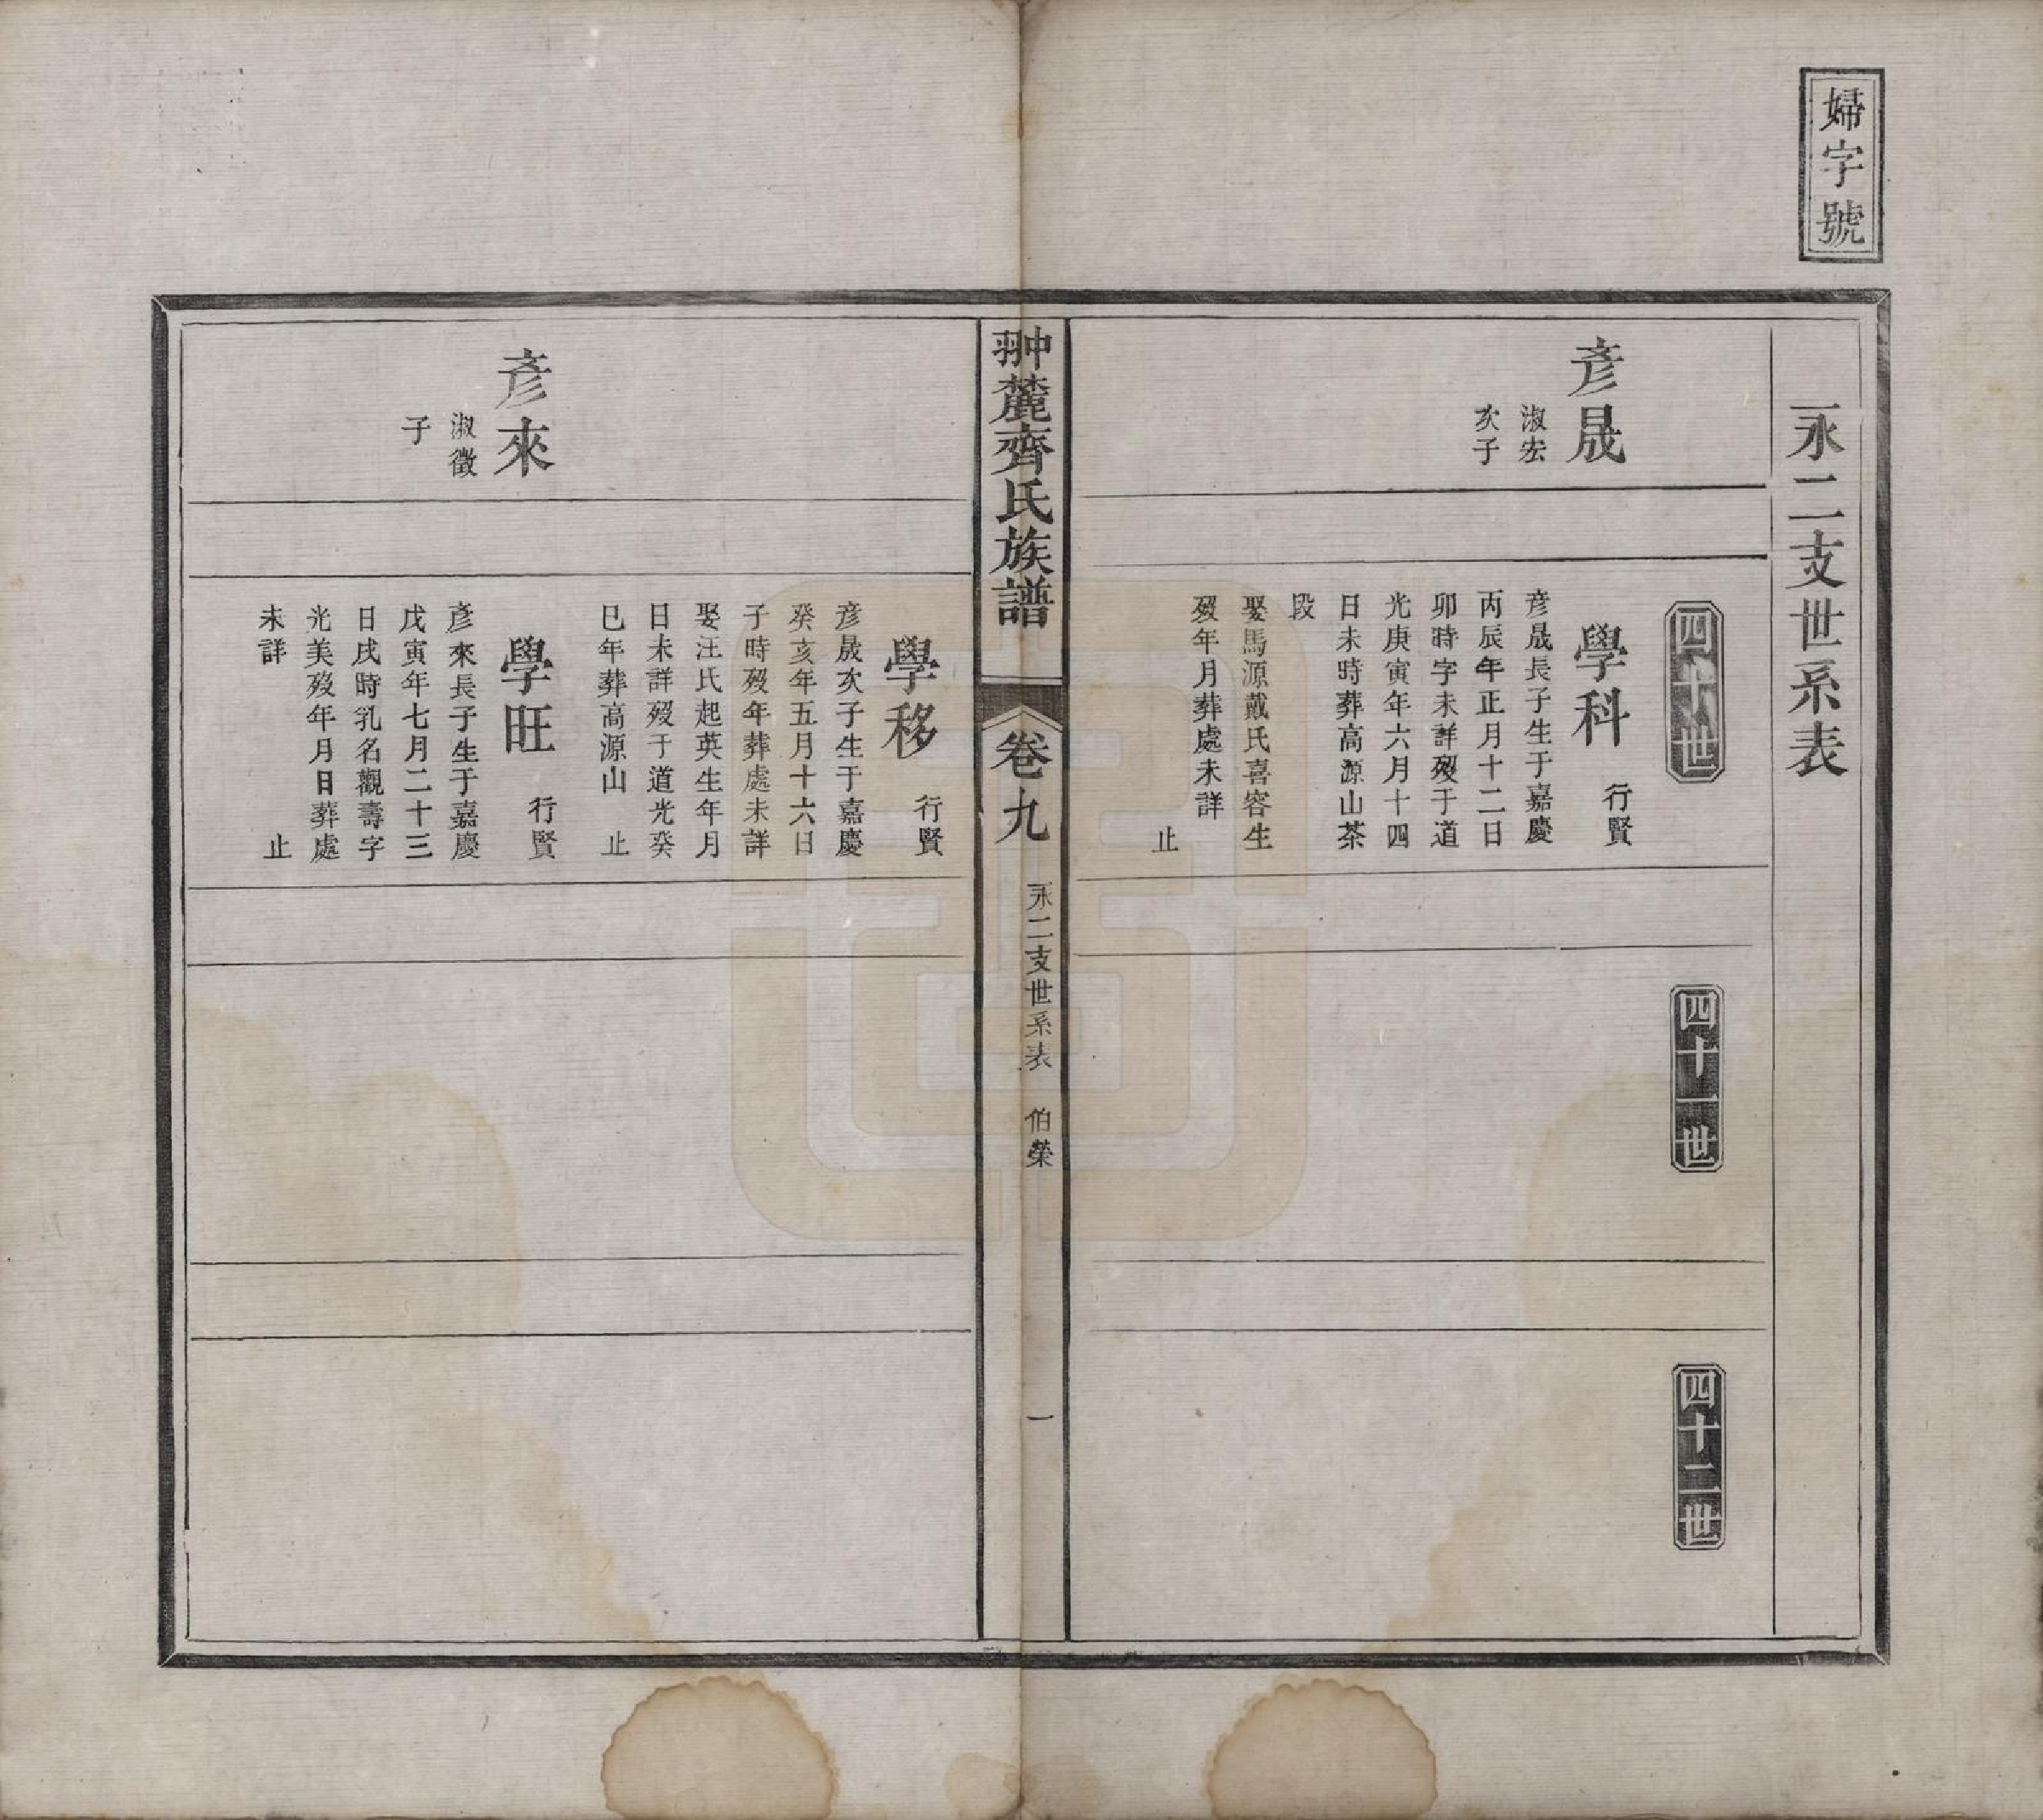 婦字號
永二支世系表
四十世
四十一世
四十二世
彥晟
淑宏
次子
學科
行賢
彥晟長子生于嘉慶
丙辰年正月十二日
卯時字未詳歿于道
光庚寅年六月十四
日未時葬高源山茶
段
娶馬源戴氏喜容生
歿年月葬處未詳
止
翀麓齊氏族譜
卷九
永二支世系表 伯榮
一
學移
行賢
彥晟次子生于嘉慶
癸亥年五月十六日
子時歿年葬處未詳
娶汪氏起英生年月
日未詳歿于道光癸
巳年葬高源山
止
彥來
淑徵
子
學旺
行賢
彥來長子生于嘉慶
戊寅年七月二十三
日戌時乳名觀壽字
光美歿年月日葬處
未詳
止